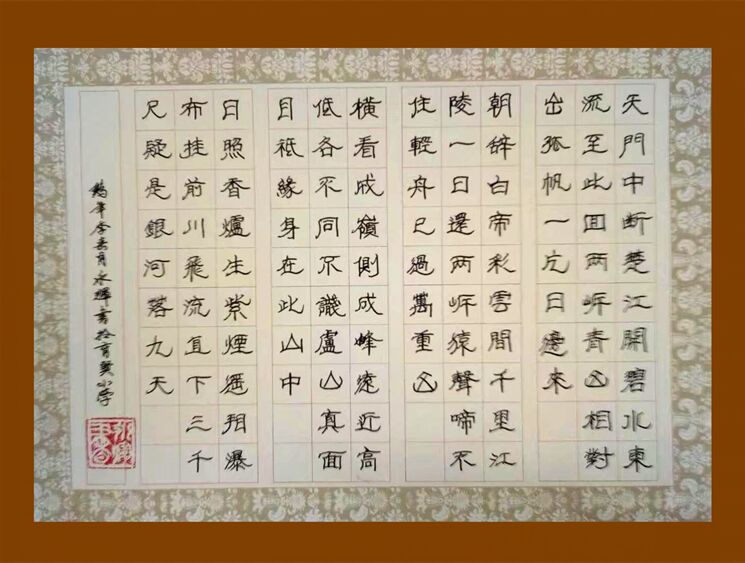 天門中断楚江開碧水東
流至此回两岸青山相對
出孤帆一片日邊来
朝辞白帝彩雲間千里江
陵一日還两岸猿聲啼不
住輕舟已過萬重山
橫看成嶺側成峰遠近高
低各不同不識廬山真面
目祗緣身在此山中
日照香爐生紫煙遥看瀑
布挂前川飛流直下三千
尺疑是銀河落九天
鷄年月永輝書於育英小学